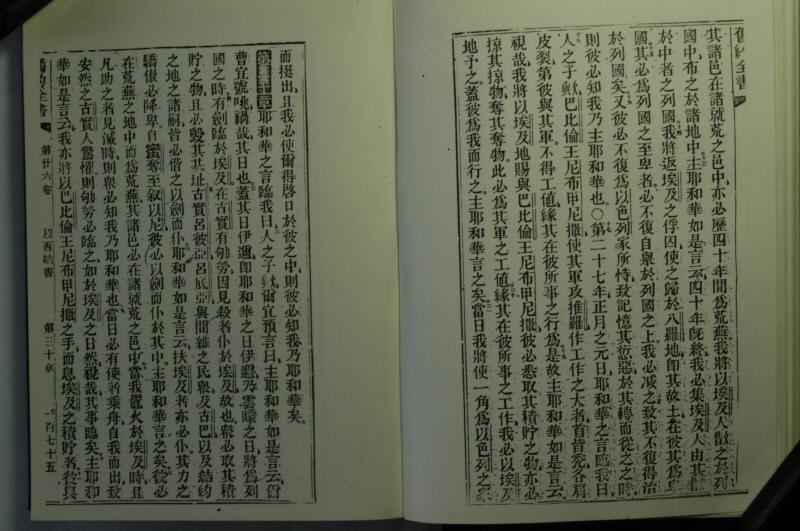 舊約全書
其諸邑在諸就荒之邑中亦必歷四十年間為荒蕪我將以埃及人散之於列
國中布之於諸地中主耶和華如是言云四十年旣終我必集埃及人由其嘗
於中者之列國我將返埃及之俘囚使之歸於八羅地卽其故土在彼其為卑
國其必為列國之至卑者必不復自舉於列國之上我必减之致其不復得治
於列國矣又彼必不復為以色列家所恃致記憶其愆惡於其轉而從之之時
則彼必知我乃主耶和華也〇第二十七年正月之元日耶和華之言臨我曰
人之子歟巴比倫王尼布甲尼撒使其軍攻推羅作工作之大者首皆禿各肩
皮裂第彼與其軍不得工値緣其在彼所事之行為是故主耶和華如是言云
視哉我將以埃及地賜與巴比倫王尼布甲尼撒彼必悉取其積貯之物亦必
掠其掠物奪其奪物此必為其軍之工値緣其在彼所事之工作我必以埃及
地予之蓋彼為我而行之主耶和華言之矣當日我將使一角為以色列之家
而挺出且我必使爾得啓口於彼之中則彼必知我乃耶和華矣
第三十章耶和華之言臨我曰人之子歟爾宜預言曰主耶和華如是言云爾
曹宜號咷禍哉其日也蓋其日伊邇卽耶和華之日伊邇乃雲曀之日將為列
國之時有劍臨於埃及在古實有劬勞因見殺者仆於埃及故也衆必取其積
貯之物且必毀其基址古實呂彼亞呂底亞與閒雜之民衆及古巴以及結約
之地之諸嗣皆必偕之以劍而仆耶和華如是言云扶埃及者亦必仆其力之
驕傲必降卑自蜜奪至叙以尼彼必以劍而仆於其中主耶和華言之矣彼必
在荒蕪之地中而為荒蕪其諸邑必在諸就荒之邑中當我置火於埃及時且
凡助之者見滅時則衆必知我乃耶和華也當日必有使者乘舟自我而出致
安然之古實人驚惶則劬勞必臨之如於埃及之日然視哉其事臨矣主耶和
華如是言云我亦將以巴比倫王尼布甲尼撒之手而息埃及之積貯者彼與
舊約全書 第廿六卷 以西結書 第三十章 一百七十五